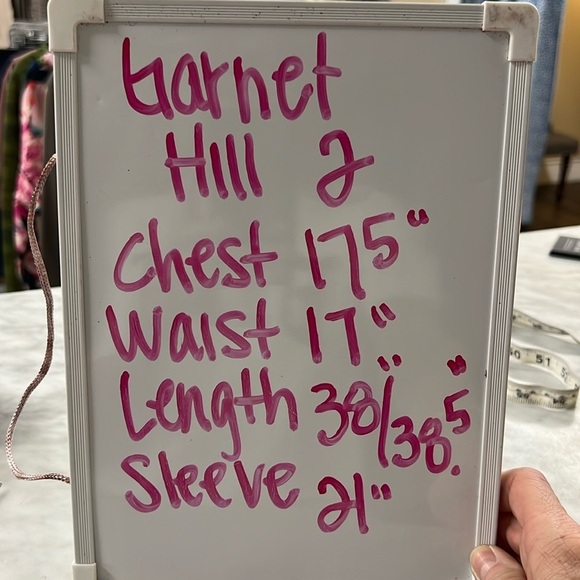 Garnet
Hill 2
Chest 17 5"
Waist 17"
Length 38"/38.5"
Sleeve 21"
51